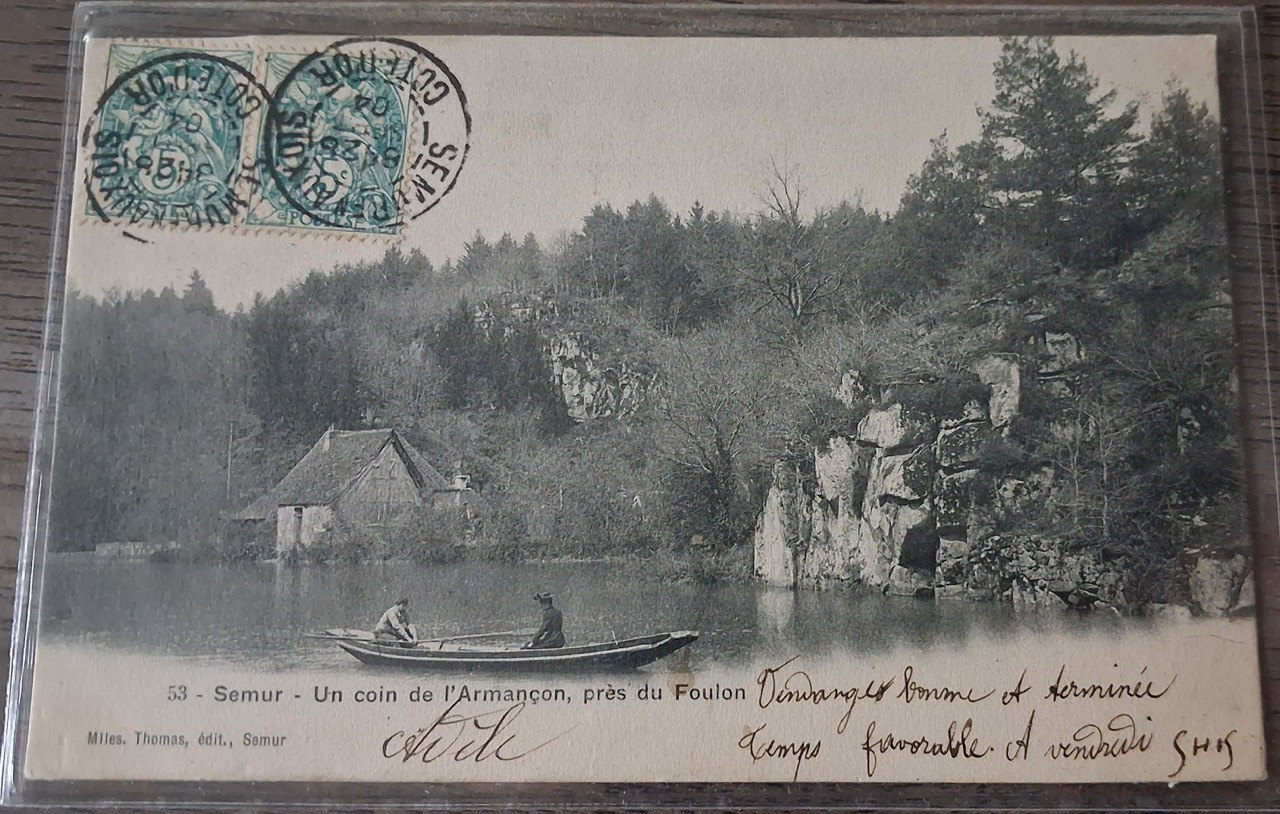 SEMUR-EN-AUXOIS
CÔTE-D'OR
04
5
SEMUR-EN-AUXOIS
CÔTE-D'OR
04
5c
53 - Semur - Un coin de l'Armançon, près du Foulon
Vendanges bonne et terminée
Mlles. Thomas, édit., Semur
Adèle
Temps favorable. A vendredi